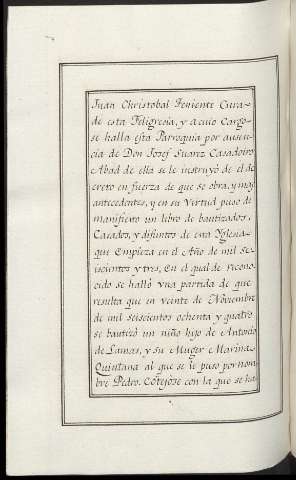 Juan Christobal Teniente Cura
de esta Feligresia, y a cuio Cargo
se halla esta Parroquia por ausen
cia de Don Josef Suarez Casadoiro
Abad de ella se le instruyó de el de
creto en fuerza de que se obra, y mas
antecedentes, y en su virtud puso de
manifiesto un libro de bautizados,
Casados, y difuntos de esta Yglesia
que Empieza en el Año de mil se
iscientos y tres, En el qual de recono
cido se halló vna partida de que
resulta que en veinte de Noviembre
de mil seiscientos ochenta y quatro
se bautizó un niño hijo de Antonio
de Lamas, y su Muger Marina
Quintana al que se le puso por nom
bre Pedro. Cotejose con la que se ha